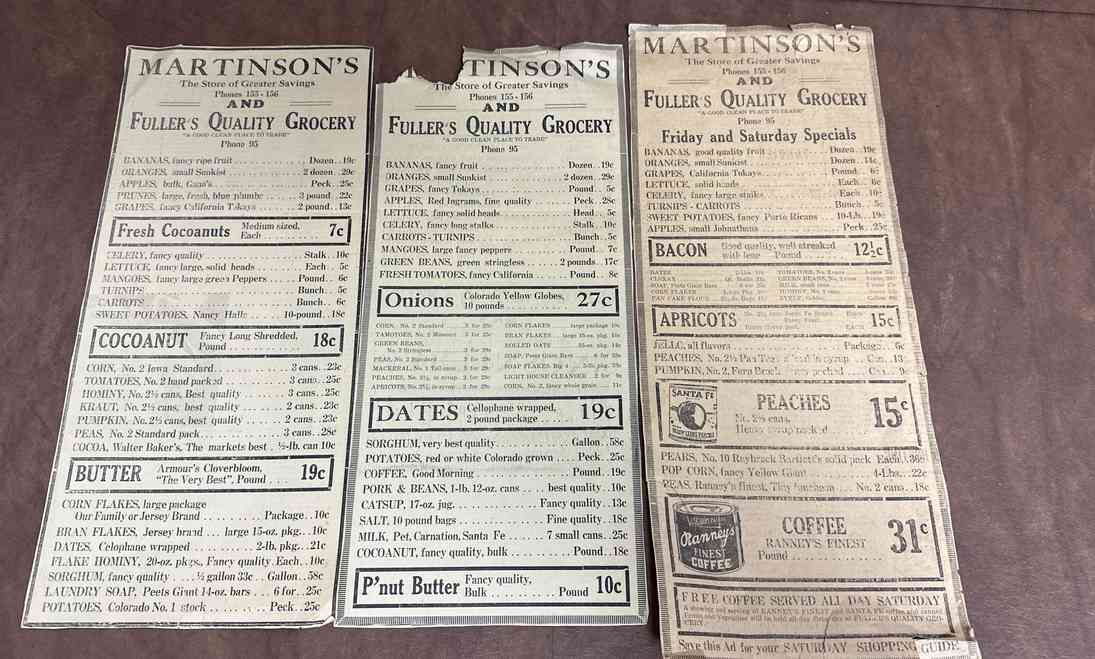 MARTINSON'S
The Store of Greater Savings
Phones 155 - 156
AND
FULLER'S QUALITY GROCERY
"A GOOD CLEAN PLACE TO TRADE"
Phone 95
BANANAS, fancy ripe fruit Dozen 19c
ORANGES, small Sunkist 2 dozen 29c
APPLES, bulk, Gano's Peck 25c
PRUNES, large, fresh, blue plumbs 3 pound 22c
GRAPES, fancy California Tokays 2 pound 13c
Fresh Cocoanuts Medium sized, Each 7c
CELERY, fancy quality Stalk 10c
LETTUCE, fancy large, solid heads Each 5c
MANGOES, fancy large green Peppers Pound 6c
TURNIPS Bunch 5c
CARROTS Bunch 6c
SWEET POTATOES, Nancy Halls 10-pound 18c
COCOANUT Fancy Long Shredded, Pound 18c
CORN, No. 2 Iowa Standard 3 cans 23c
TOMATOES, No. 2 hand packed 3 cans 25c
HOMINY, No. 2½ cans, Best quality 3 cans 25c
KRAUT, No. 2½ cans, best quality 2 cans 23c
PUMPKIN, No. 2½ cans, best quality 2 cans 23c
PEAS, No. 2 Standard pack 3 cans 28c
COCOA, Walter Baker's, The markets best ½-lb. can 10c
BUTTER Armour's Cloverbloom, "The Very Best", Pound 19c
CORN FLAKES, large package
Our Family or Jersey Brand Package 10c
BRAN FLAKES, Jersey brand large 15-oz. pkg. 10c
DATES, Celophane wrapped 2-lb. pkg. 21c
FLAKE HOMINY, 20-oz. pkgs., Fancy quality Each 10c
SORGHUM, fancy quality ½ gallon 33c Gallon 58c
LAUNDRY SOAP, Peets Giant 14-oz. bars 6 for 25c
POTATOES, Colorado No. 1 stock Peck 25c
TINSON'S
The Store of Greater Savings
Phones 155 - 156
AND
FULLER'S QUALITY GROCERY
"A GOOD CLEAN PLACE TO TRADE"
Phone 95
BANANAS, fancy fruit Dozen 19c
ORANGES, small Sunkist 2 dozen 29c
GRAPES, fancy Tokays Pound 5c
APPLES, Red Ingrams, fine quality Peck 28c
LETTUCE, fancy solid heads Head 5c
CELERY, fancy long stalks Stalk 10c
CARROTS - TURNIPS Bunch 5c
MANGOES, large fancy peppers Pound 7c
GREEN BEANS, green stringless 2 pounds 17c
FRESH TOMATOES, fancy California Pound 8c
Onions Colorado Yellow Globes, 10 pounds 27c
CORN, No. 2 Standard 3 for 25c
TAMOTOES, No. 2 Missouri 3 for 25c
GREEN BEANS,
No. 2 Stringless 3 for 29c
PEAS, No. 2 Standard 3 for 29c
MACKERAL, No. 1 Tall cans 3 for 29c
PEACHES, No. 2½, in syrup 2 for
APRICOTS, No. 2½, in syrup 2 for
CORN FLAKES large package 10c
BRAN FLAKES large 15-oz. pkg.
ROLLED OATS
SOAP, Peets Giant Bars 6 for 25c
SOAP FLAKES, Big 4 5-lb. pkg.
LIGHT HOUSE CLEANSER 2 for
CORN, No. 2, fancy whole grain 11c
DATES Cellophane wrapped, 2 pound package 19c
SORGHUM, very best quality Gallon 58c
POTATOES, red or white Colorado grown Peck 25c
COFFEE, Good Morning Pound 19c
PORK & BEANS, 1-lb. 12-oz. cans best quality 10c
CATSUP, 17-oz. jug. Fancy quality 13c
SALT, 10 pound bags Fine quality 18c
MILK, Pet, Carnation, Santa Fe 7 small cans 25c
COCOANUT, fancy quality, bulk Pound 18c
P'nut Butter Fancy quality, Bulk Pound 10c
MARTINSON'S
The Store of Greater Savings
Phones 155 - 156
AND
FULLER'S QUALITY GROCERY
"A GOOD CLEAN PLACE TO TRADE"
Phone 95
Friday and Saturday Specials
BANANAS, good quality fruit Dozen 19c
ORANGES, small Sunkist Dozen 14c
GRAPES, California Tokays Pound 6c
LETTUCE, solid heads Each 6c
CELERY, fancy large stalks Each 10c
TURNIPS - CARROTS Bunch 5c
SWEET POTATOES, fancy Porto Ricans 10-Lbs. 19c
APPLES, small Johnathons Peck 25c
BACON Good quality, well streaked with lean Pound 12½c
DATES
SOAP, Peets Giant Bars 6 for 25c
CORN FLAKES
PAN CAKE FLOUR
TOMATOES, No. 2 cans
GREEN BEANS, No. 2 cans
MILK, small cans
HOMINY, No. 2 cans
APRICOTS 15c
JELLO, all flavors Package 5c
PEACHES, No. 2½ in syrup Can 13c
PUMPKIN, No. 2, packed Can 9c
SANTA FE
PEACHES No. 2½ cans, Heavy syrup packed 15c
PEARS, No. 10 Raybrack Bartlett's solid pack Each 36c
POP CORN, fancy Yellow Giant 4-Lbs. 22c
PEAS, Ranney's finest, Tiny No. 2 cans 18c
Ranney's
FINEST
COFFEE
COFFEE
RANNEY'S FINEST
Pound 31c
FREE COFFEE SERVED ALL DAY SATURDAY
A showing and serving of RANNEY'S FINEST and SANTA FE coffee and canned
fruits and vegetables will be held all day Saturday at FULLER'S QUALITY GRO-
CERY.
Save this Ad for your SATURDAY SHOPPING GUIDE